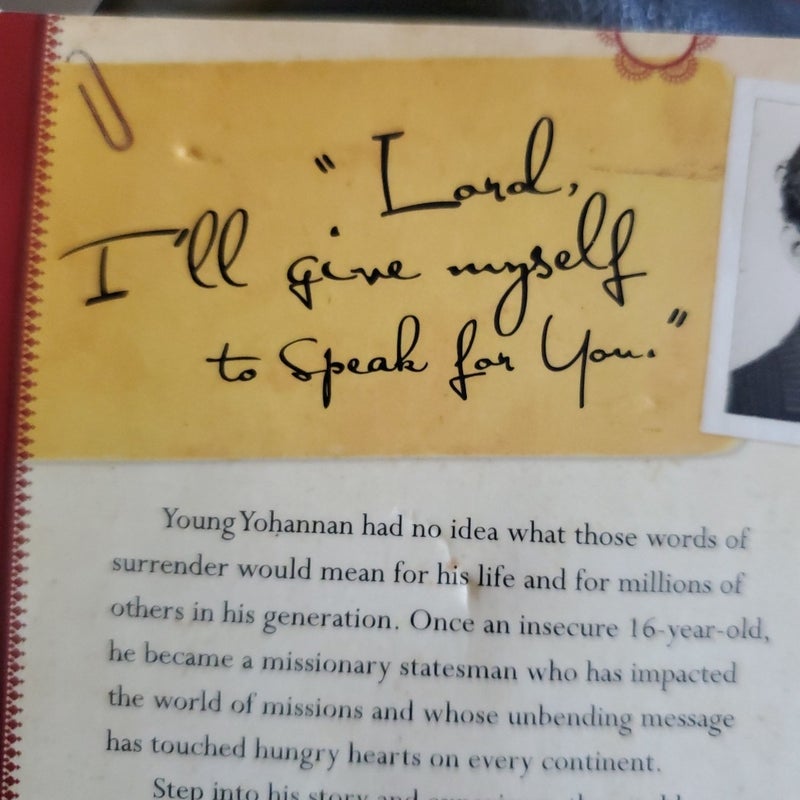 "Lord,
I'll give myself
to Speak for You."
Young Yohannan had no idea what those words of
surrender would mean for his life and for millions of
others in his generation. Once an insecure 16-year-old,
he became a missionary statesman who has impacted
the world of missions and whose unbending message
has touched hungry hearts on every continent.
Step into his story and